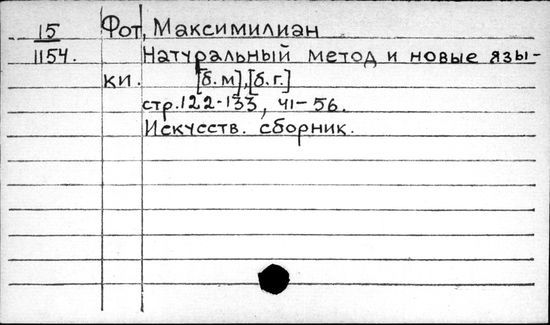 15 Фот, Максимилиан
1154. Натуральный метод и новые язы-
ки. [б.м], [б.г.]
стр.122-133, 41-56.
Искусств. сборник.